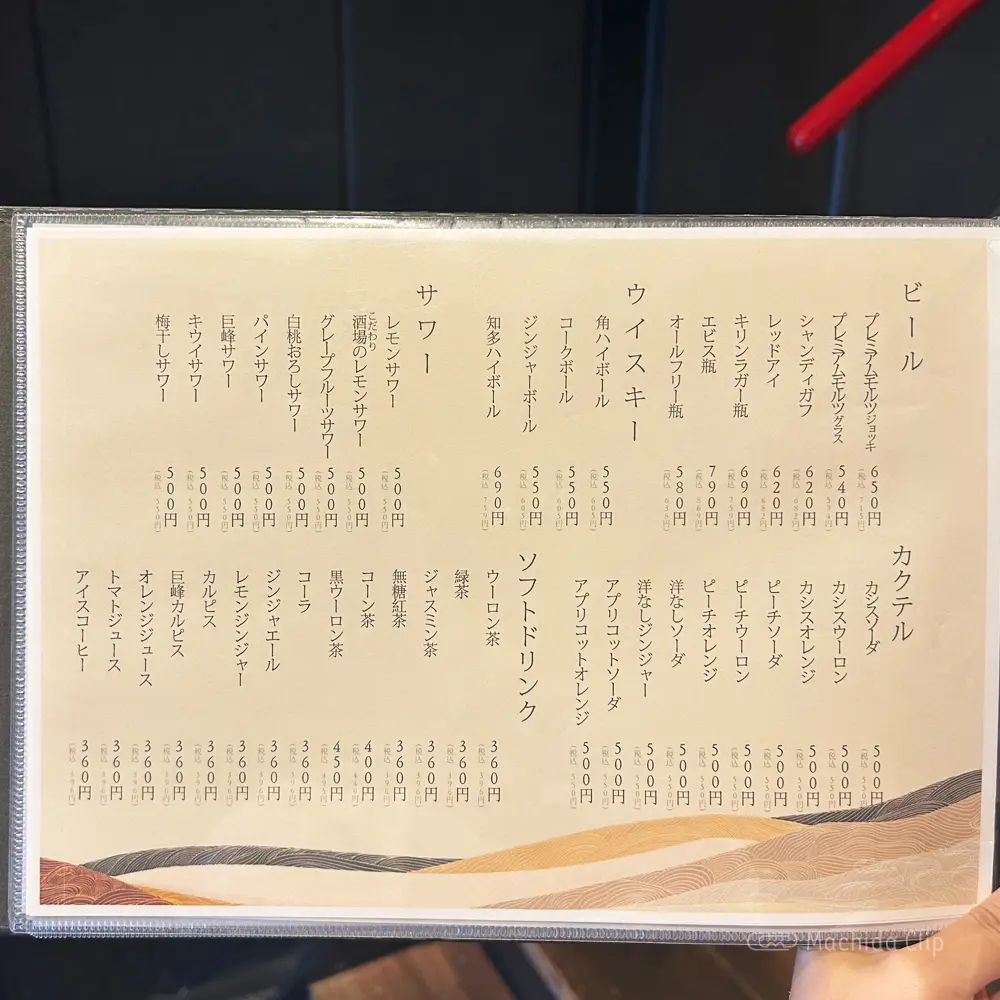 ビール
プレミアムモルツジョッキ 650円 (税込 715円)
プレミアムモルツグラス 540円 (税込 594円)
シャンディガフ 620円 (税込 682円)
レッドアイ 620円 (税込 682円)
キリンラガー瓶 690円 (税込 759円)
エビス瓶 790円 (税込 869円)
オールフリー瓶 580円 (税込 638円)
ウイスキー
角ハイボール 550円 (税込 605円)
コークボール 550円 (税込 605円)
ジンジャーボール 550円 (税込 605円)
知多ハイボール 690円 (税込 759円)
サワー
レモンサワー 500円 (税込 550円)
こだわり酒場のレモンサワー 500円 (税込 550円)
グレープフルーツサワー 500円 (税込 550円)
白桃おろしサワー 500円 (税込 550円)
パインサワー 500円 (税込 550円)
巨峰サワー 500円 (税込 550円)
キウイサワー 500円 (税込 550円)
梅干しサワー 500円 (税込 550円)
カクテル
カシスソーダ 500円 (税込 550円)
カシスウーロン 500円 (税込 550円)
カシスオレンジ 500円 (税込 550円)
ピーチソーダ 500円 (税込 550円)
ピーチウーロン 500円 (税込 550円)
ピーチオレンジ 500円 (税込 550円)
洋なしソーダ 500円 (税込 550円)
洋なしジンジャー 500円 (税込 550円)
アプリコットソーダ 500円 (税込 550円)
アプリコットオレンジ 500円 (税込 550円)
ソフトドリンク
ウーロン茶 360円 (税込 396円)
緑茶 360円 (税込 396円)
ジャスミン茶 360円 (税込 396円)
無糖紅茶 360円 (税込 396円)
コーン茶 400円 (税込 440円)
黒ウーロン茶 450円 (税込 495円)
コーラ 360円 (税込 396円)
ジンジャエール 360円 (税込 396円)
レモンジンジャー 360円 (税込 396円)
カルピス 360円 (税込 396円)
巨峰カルピス 360円 (税込 396円)
オレンジジュース 360円 (税込 396円)
トマトジュース 360円 (税込 396円)
アイスコーヒー 360円 (税込 396円)
Machida Clip